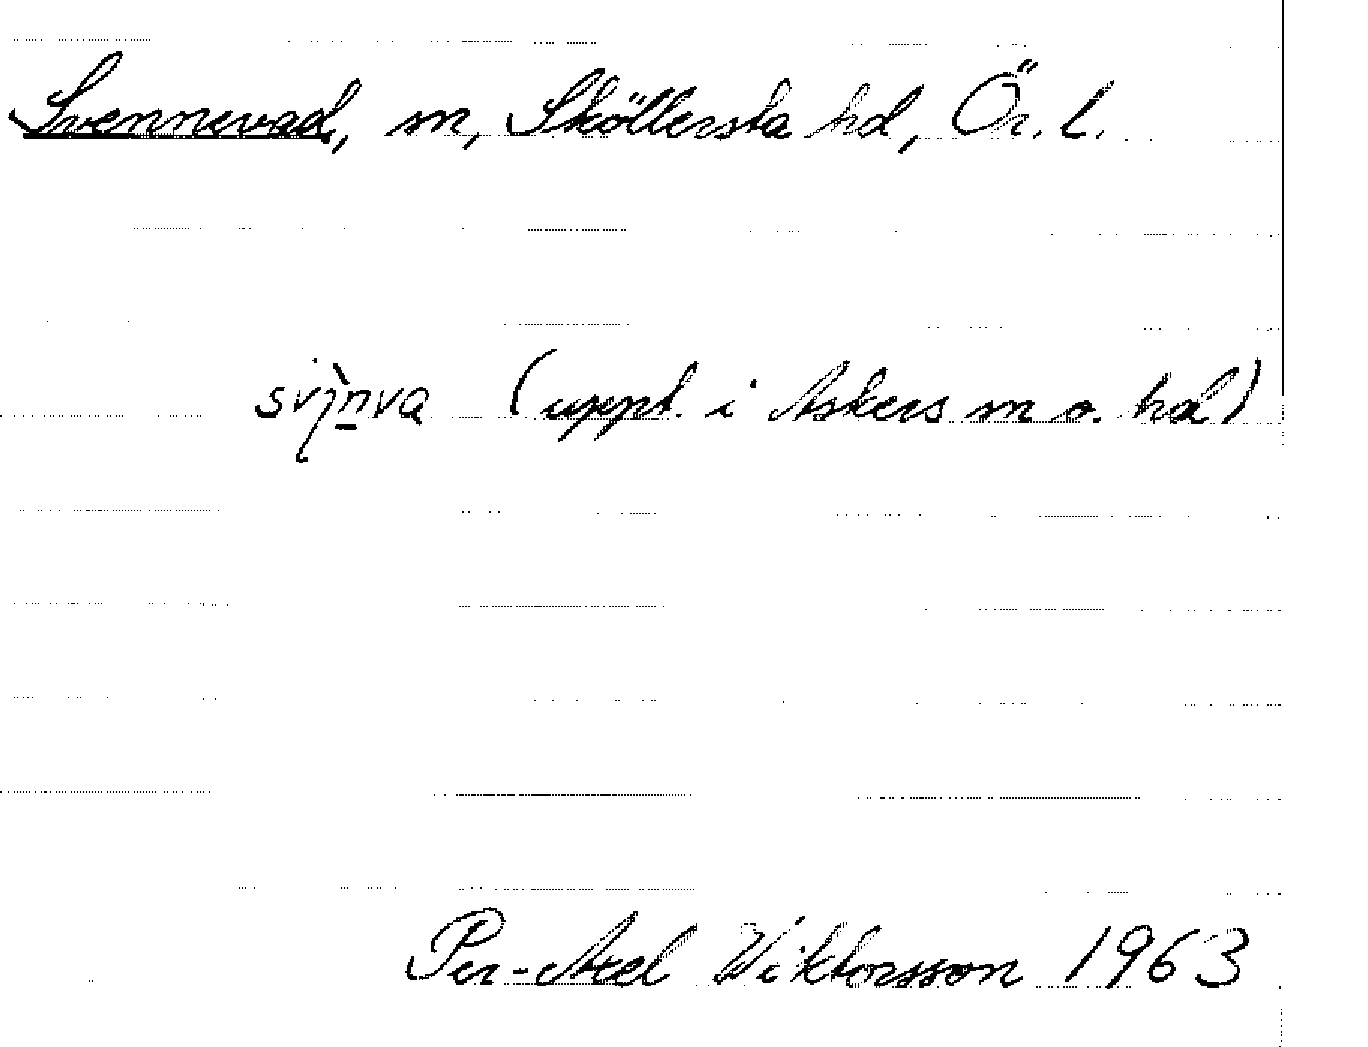 Svennevad, sn, Sköllersta hd, Ör. l.
svı̀n̠va (uppt. i Askers sn o. hd)
Per-Axel Wiktorsson 1963